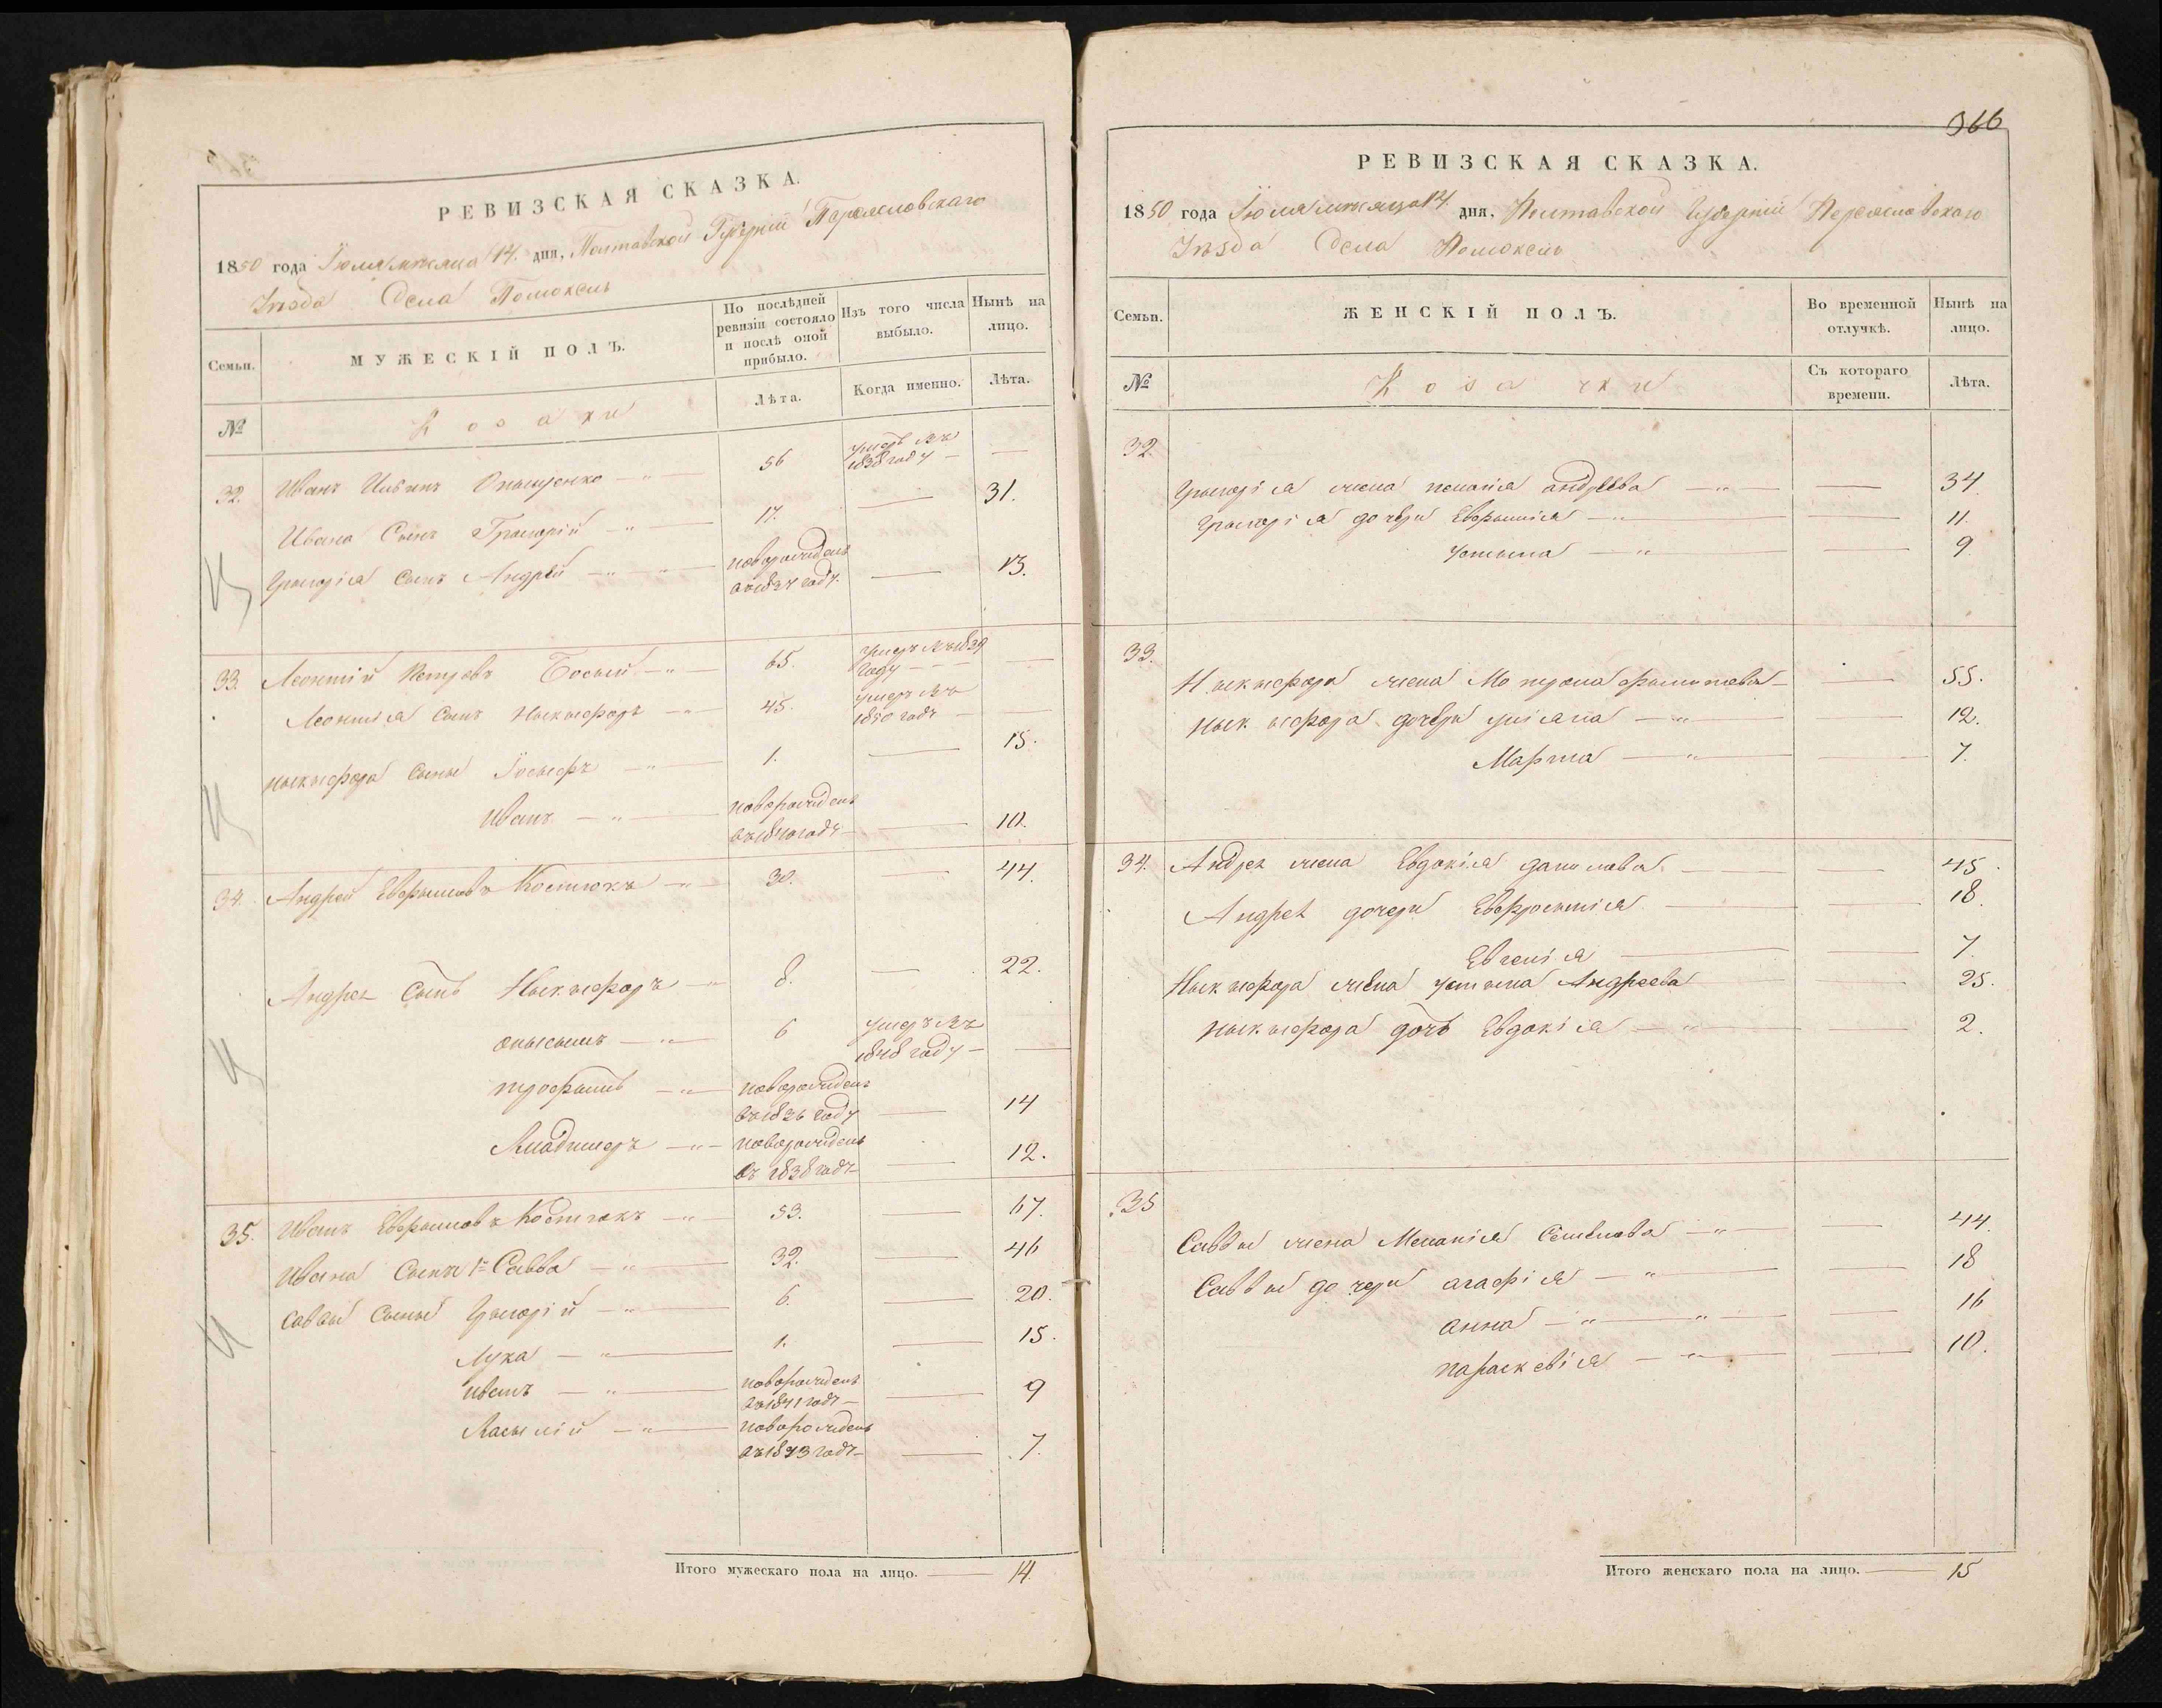 РЕВИЗСКАЯ СКАЗКА.
1850 года Іюля мѣсяца 14. дня, Полтавской Губерніи Переясловскаго
Уѣзда Села Помоклъ
Семьи.
МУЖЕСКІЙ ПОЛЪ.
По послѣдней ревизіи состояло и послѣ оной прибыло.
Изъ того числа выбыло.
Нынѣ на лицо.
№
Козаки
Лѣта.
Когда именно.
Лѣта.
32. Иванъ Оныщенко 56 умеръ въ 1838 году
Ивана Сынъ Григорій 17. 31.
Григорія Сынъ Андрей новорожденъ въ 1837 году. 13.
33. Леонтій Петровъ Босый 65. умеръ въ 1839 году
Леонтія Сынъ Ныкыфоръ 45. умеръ въ 1850 годѣ
Ныкыфора Сыны Іосыфъ 1. 15.
Иванъ новорожденъ въ 1840 годѣ 10.
34. Андрей Евфымовъ Костюкъ 30. 44.
Андрея Сынъ Ныкыфоръ 8. 22.
Онысымъ 6 умеръ въ 1848 году
Трофымъ новорожденъ въ 1836 году 14
Владимеръ новорожденъ въ 1838 годѣ 12.
35. Иванъ Евфымовъ Костюкъ 53. 67.
Ивана Сынъ 1й Савва 32. 46
Саввы Сыны Григорій 6. 20.
Лука 1. 15.
Иванъ новорожденъ въ 1841 годѣ 9
Васылій новорожденъ въ 1843 годѣ 7.
Итого мужескаго пола на лицо. 14
366
РЕВИЗСКАЯ СКАЗКА.
1850 года Іюля мѣсяца 14 дня, Полтавской Губерніи Переясловскаго
Уѣзда Села Помоклъ
Семьи.
ЖЕНСКІЙ ПОЛЪ.
Во временной отлучкѣ.
Нынѣ на лицо.
№
Козачки
Съ котораго времени.
Лѣта.
32.
Григорія жена Пелагія Андреева 34
Григорія дочери Евфымія 11.
Устына 9
33.
Ныкыфора жена Мотрона 55.
Ныкыфора дочери Уліана 12.
Марта 7.
34. Андрея жена Евдокія Данилова 45
Андрея дочери Евфросынія 18.
Евгенія 7.
Ныкыфора жена Устына Андреева 25.
Ныкыфора дочь Евдокія 2.
35
Саввы жена Меланія Семенова 44.
Саввы дочери Агафія 18
Анна 16
Параскевія 10.
Итого женскаго пола на лицо. 15